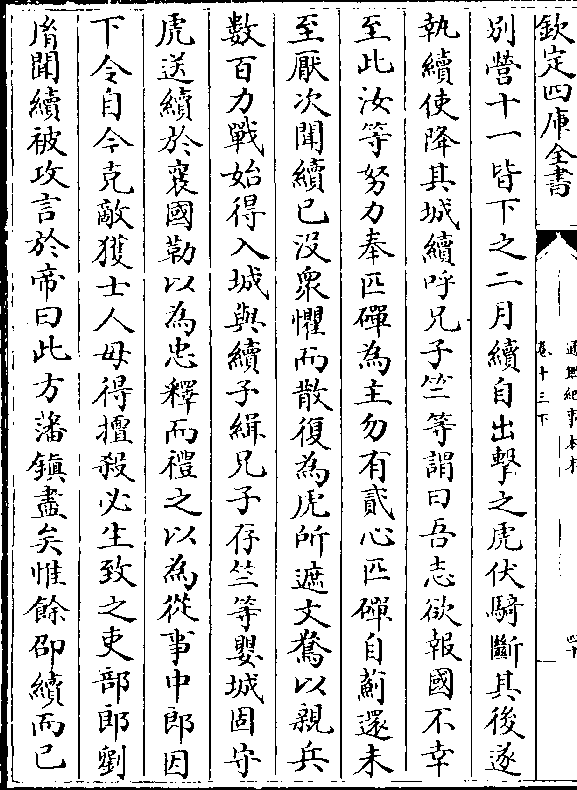 欽定四庫全書
通鑑紀事本末
卷十三下
四十
別營十一皆下之二月續自出擊之虎伏騎斷其後遂
執續使降其城續呼兄子竺等謂曰吾志欲報國不幸
至此汝等努力奉匹磾為主勿有貳心匹磾自薊還未
至厭次聞續已没衆懼而散復為虎所遮文鴦以親兵
數百力戰始得入城與續子緝兄子存竺等嬰城固守
虎送續於襄國勒以為忠釋而禮之以為從事中郎因
下令自今克敵獲士人毋得擅殺必生致之吏部郎劉
胤聞續被攻言於帝曰此方藩鎮盡矣惟餘邵續而已